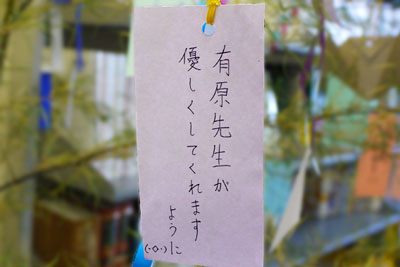 有原先生が
優しくしてくれます
ように
(･o･)